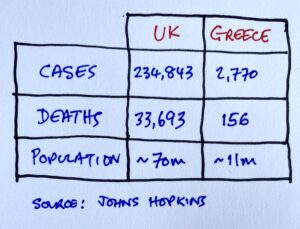 UK GREECE
CASES 234,843 2,770
DEATHS 33,693 156
POPULATION ~70m ~11m
SOURCE: JOHNS HOPKINS